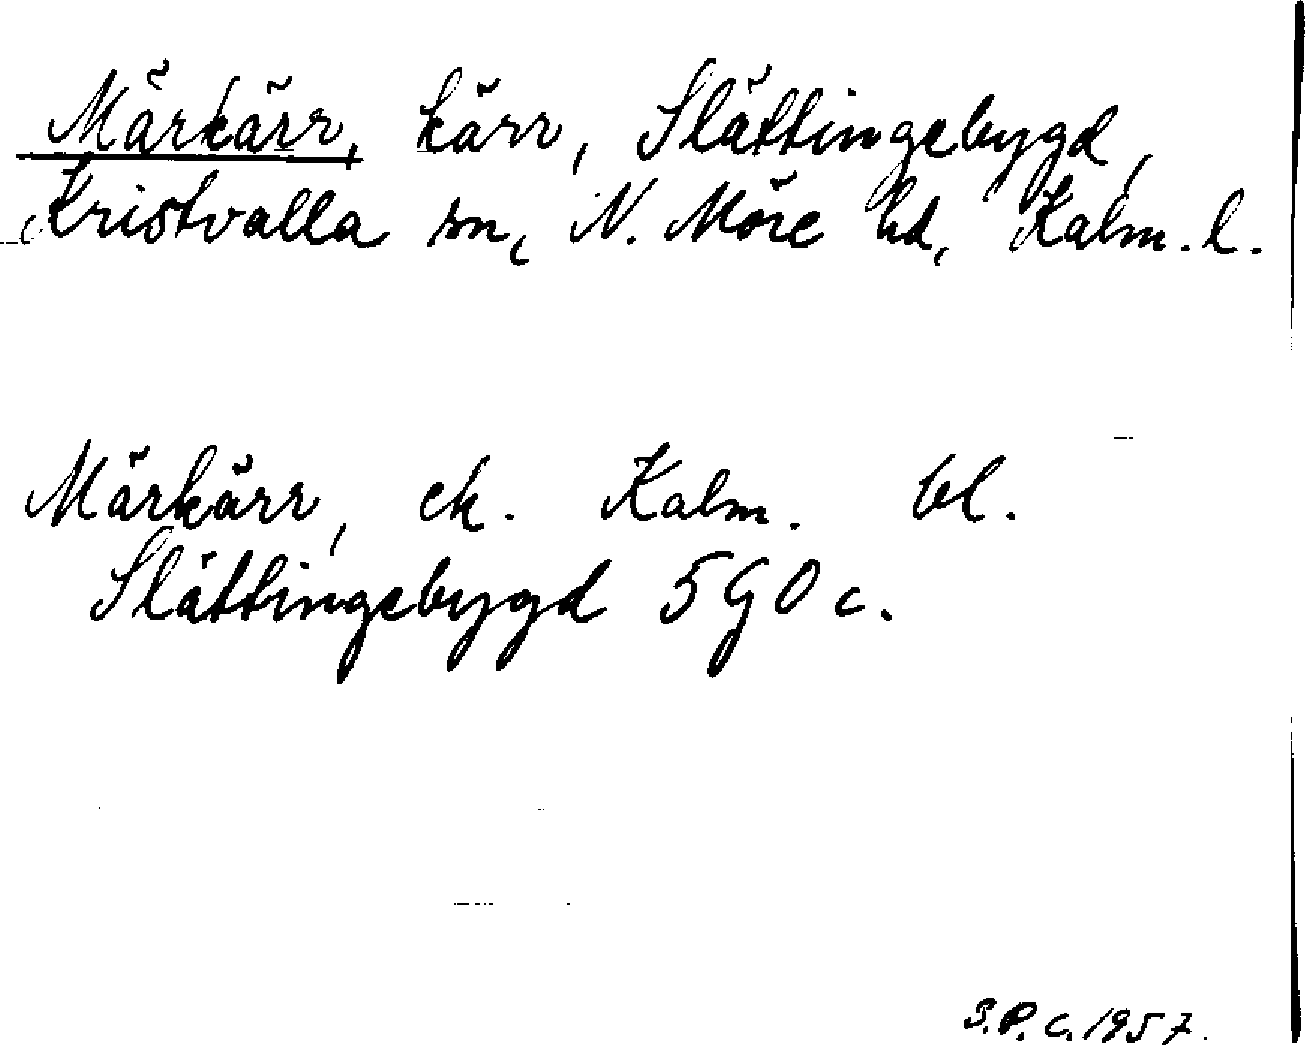 Märkärr, kärr, Slättingebygd,
Kristvalla sn, N. Möre hd, Kalm. l.
Märkärr, ek. Kalm. bl.
Slättingebygd 5 G O c.
S.P.C. 1957.